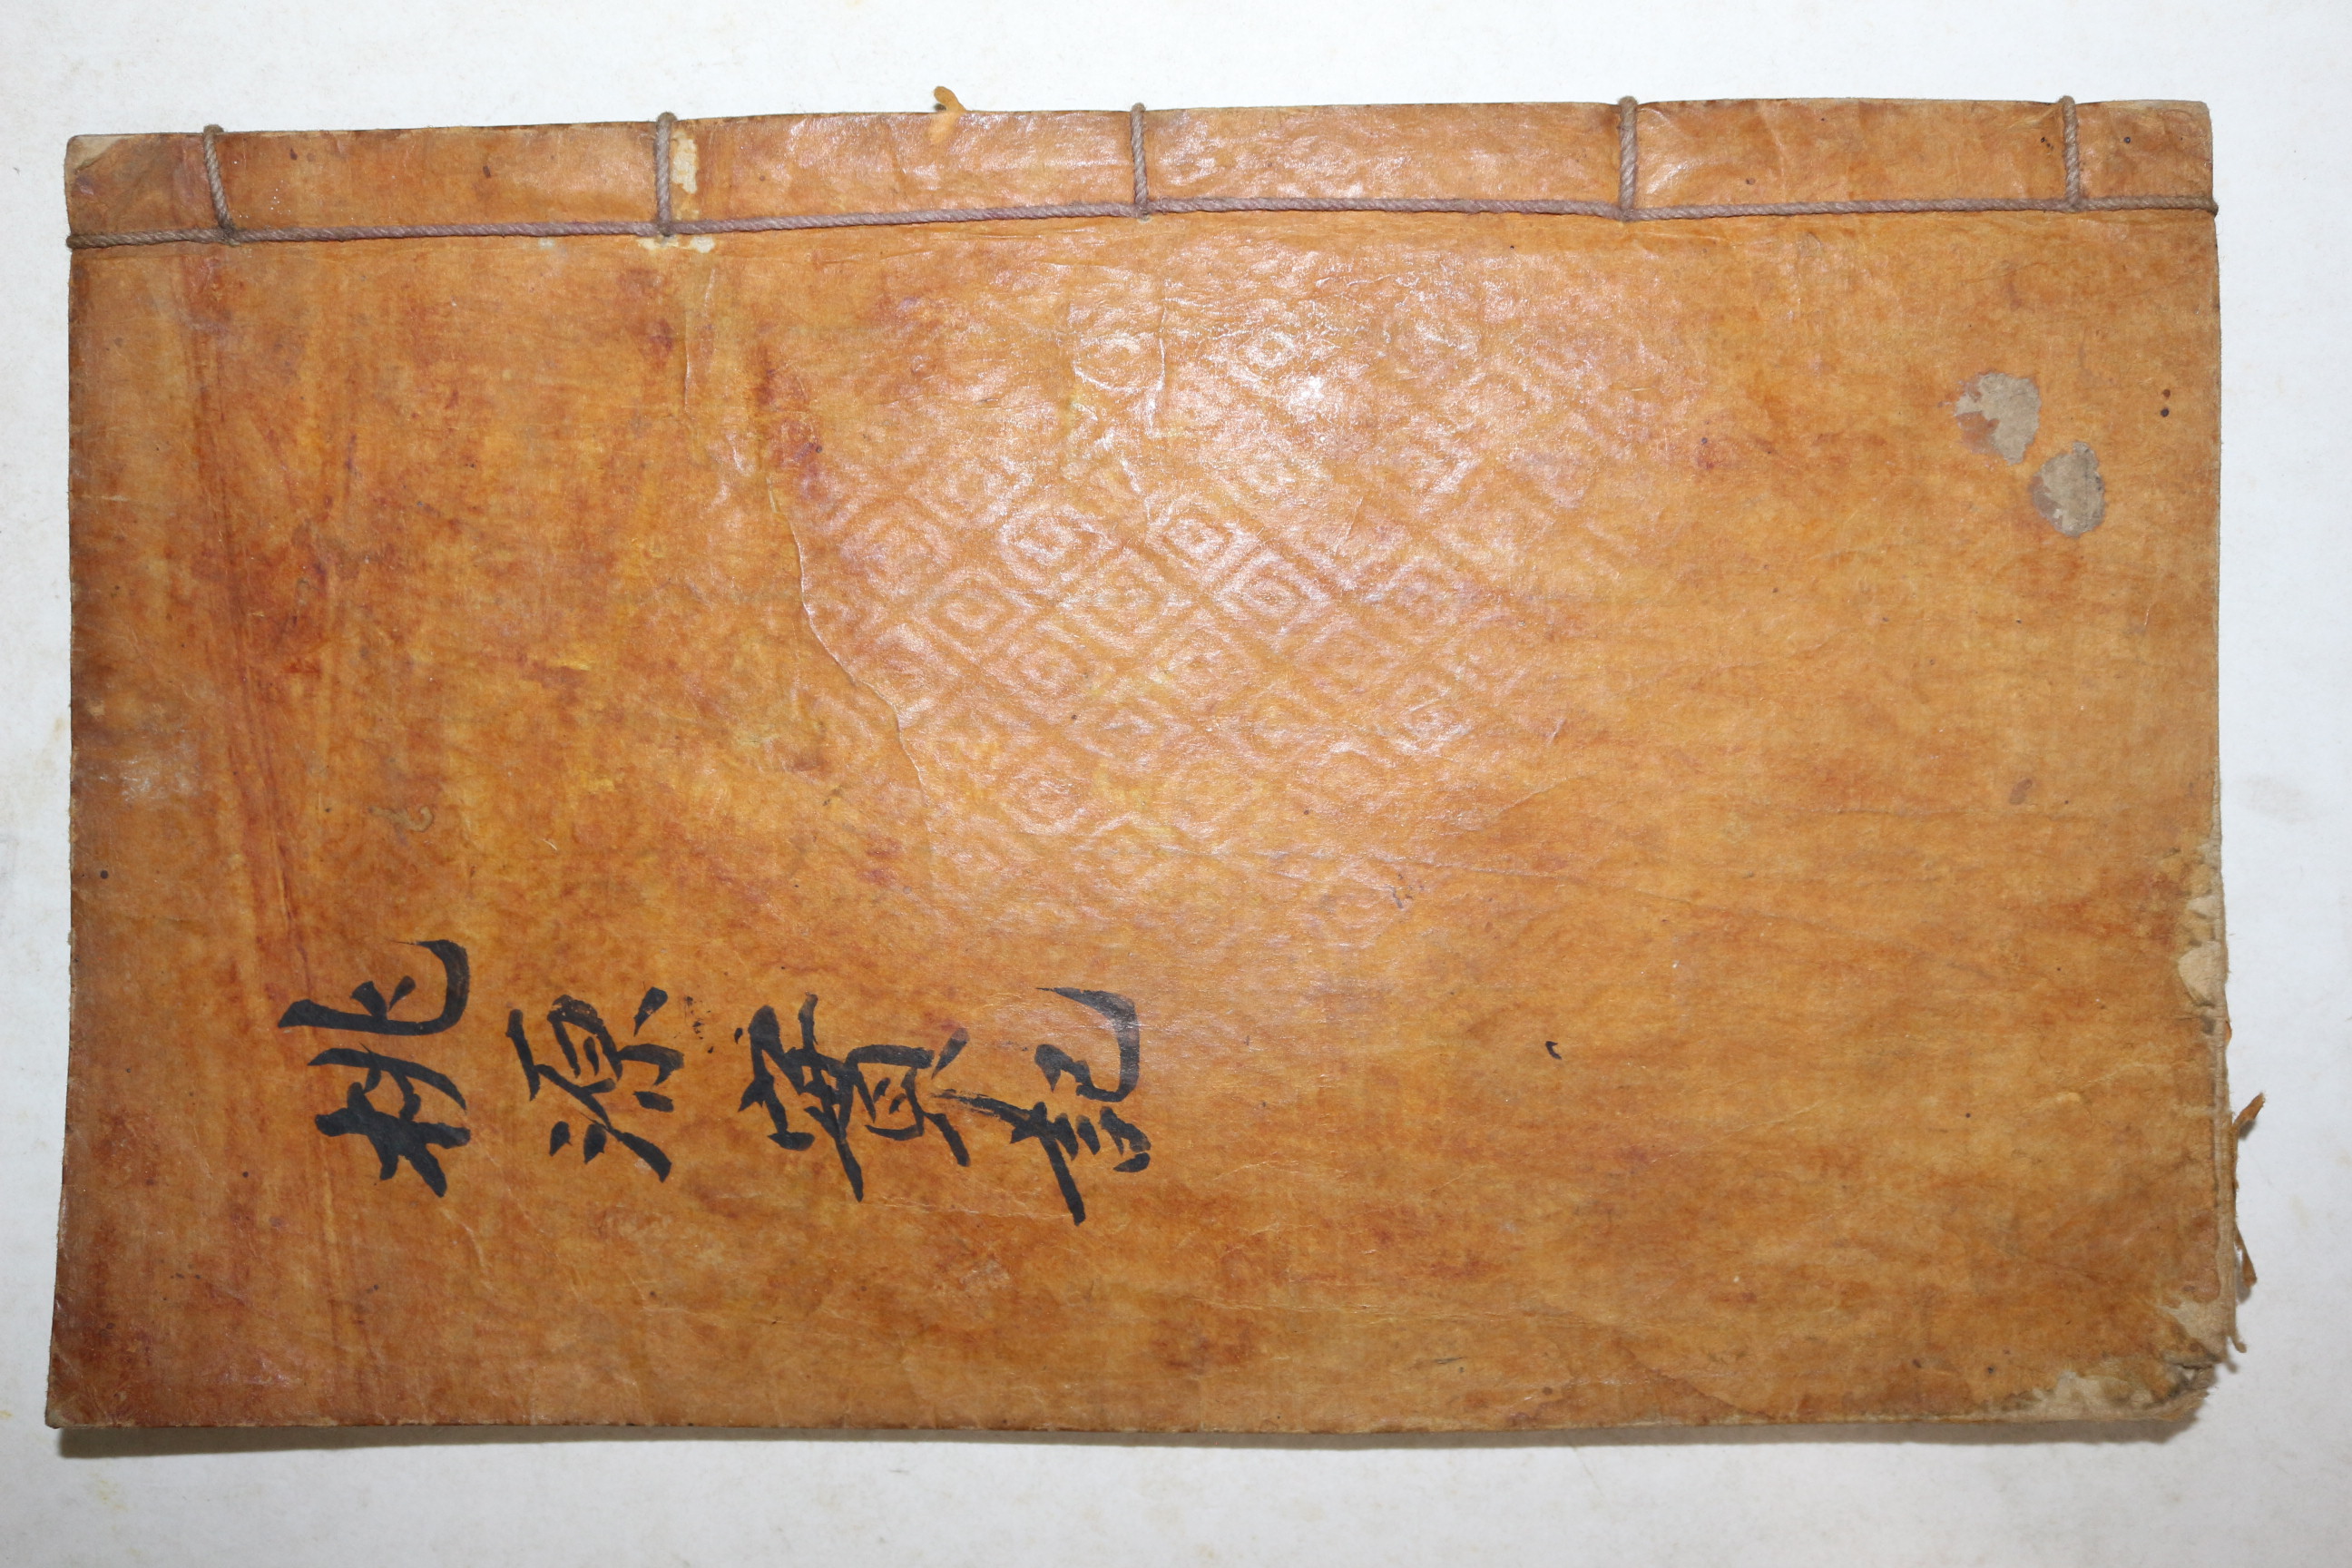 桃源實記